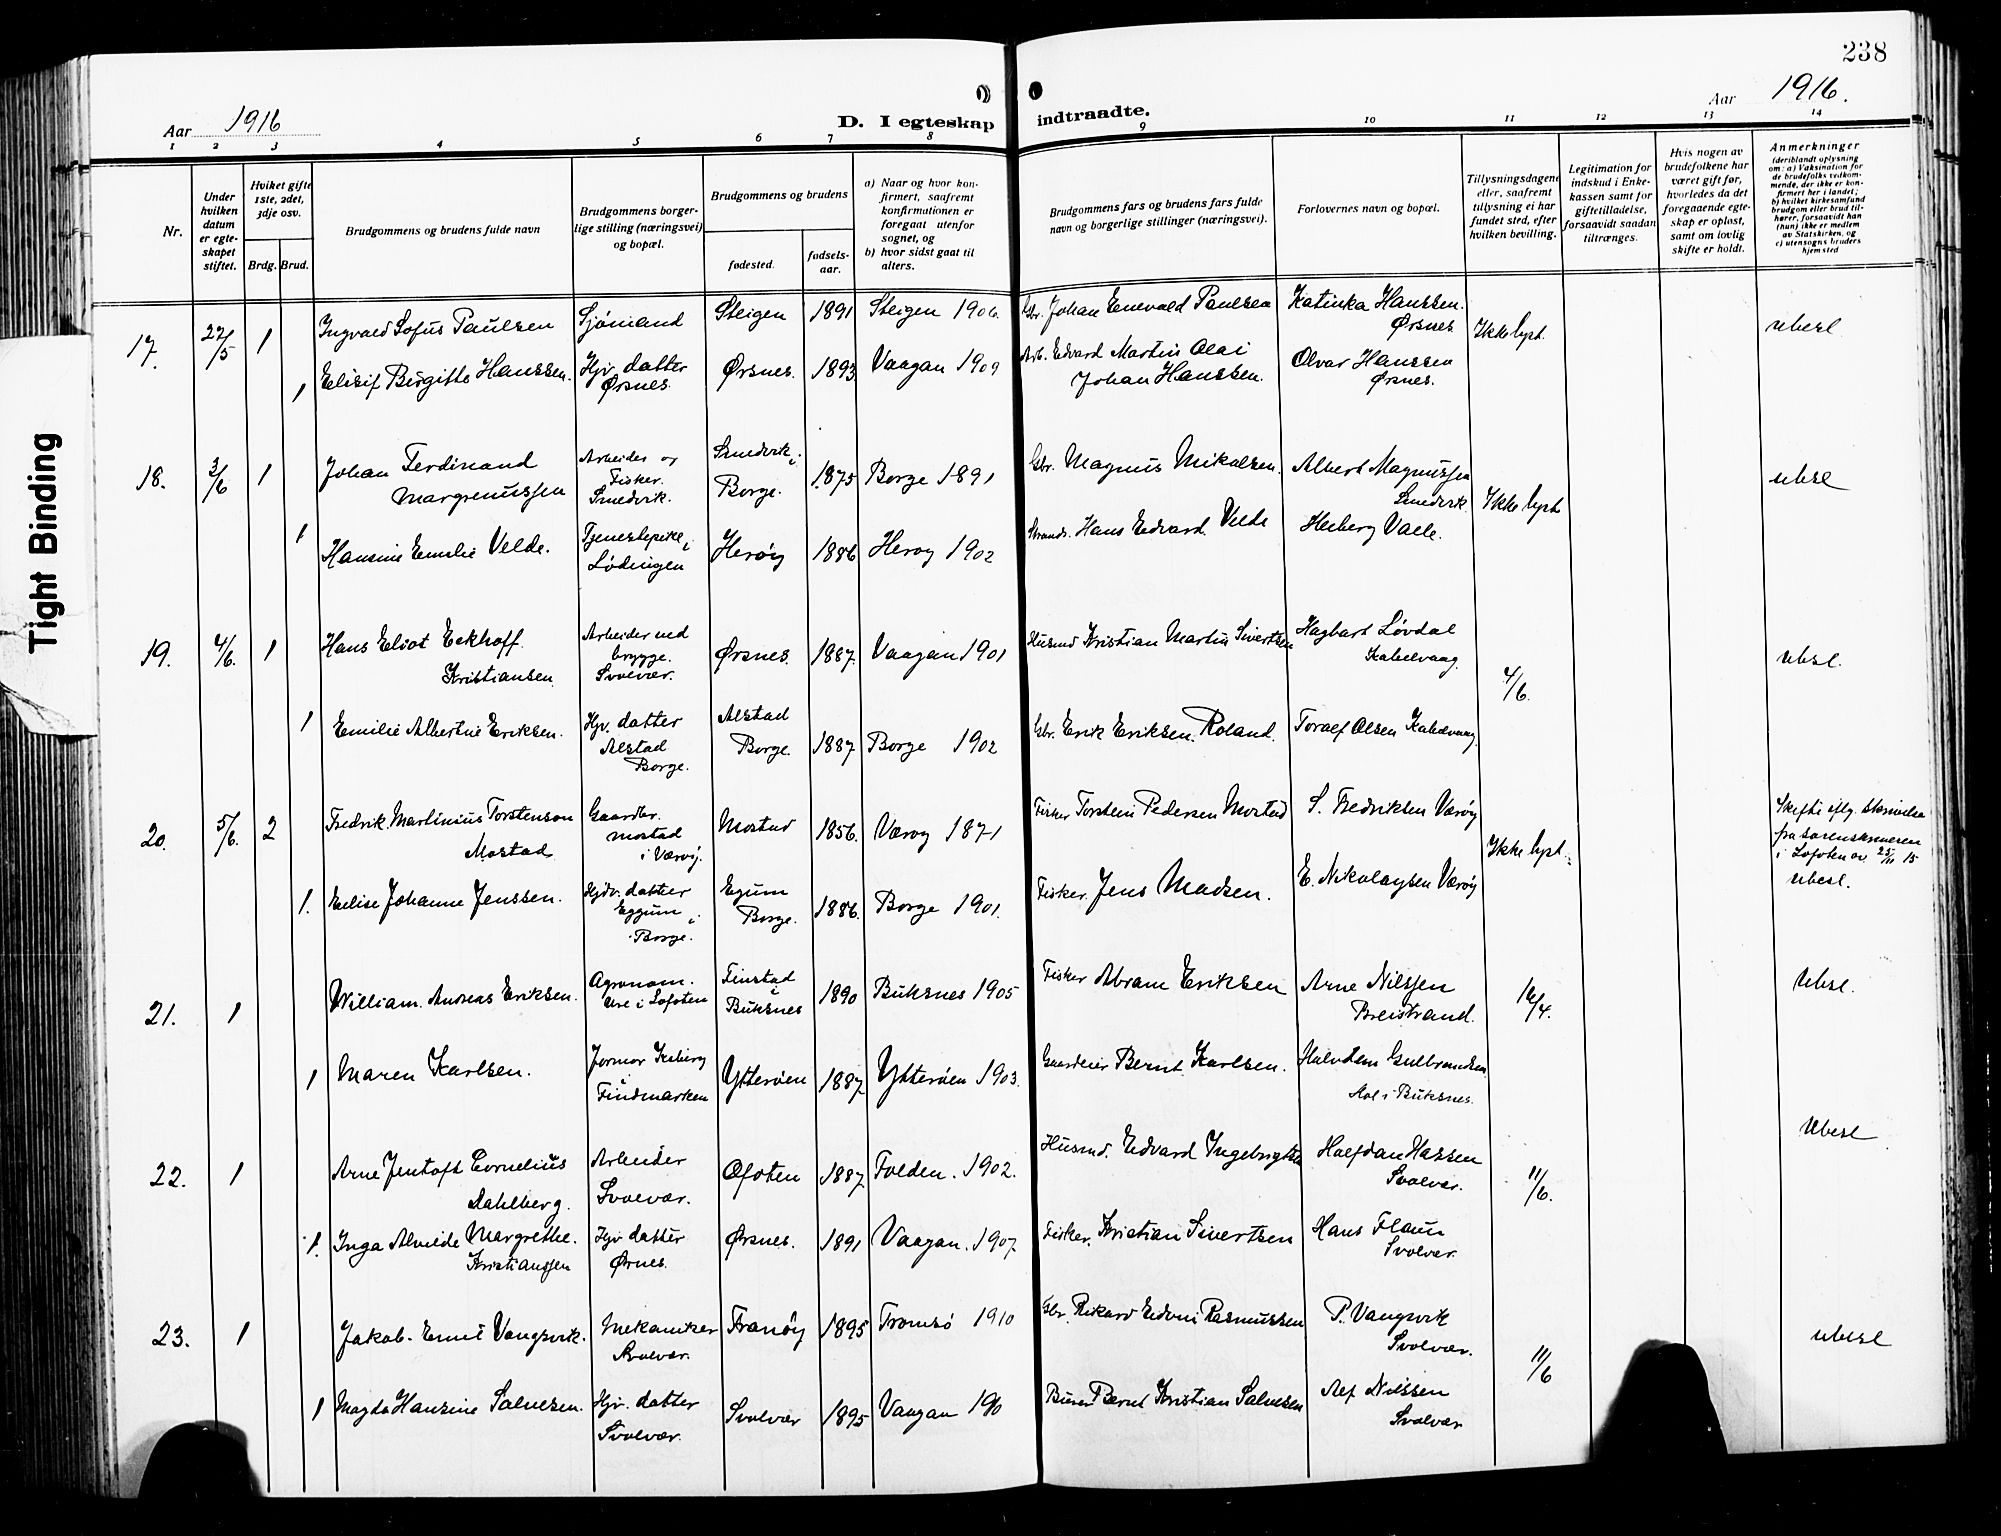 238
Aar 1916
D. I egteskap indtraadte.
Aar 1916.
1 2 3 4 5 6 7 8 9 10 11 12 13 14
Nr.
Under hvilken datum er egteskapet stiftet.
Hvilket gifte 1ste, 2det, 3dje osv.
Brdg. Brud.
Brudgommens og brudens fulde navn
Brudgommens borgerlige stilling (næringsvei) og bopæl.
Brudgommens og brudens
fødested.
fødselsaar.
a) Naar og hvor konfirmert, saafremt konfirmationen er foregaat utenfor sognet, og
b) hvor sidst gaat til alters.
Brudgommens fars og brudens fars fulde navn og borgerlige stillinger (næringsvei).
Forlovernes navn og bopæl.
Tillysningsdagene eller, saafremt tillysning ei har fundet sted, efter hvilken bevilling.
Legitimation for indskud i Enkekassen samt for giftetilladelse, forsaavidt saadan tiltrænges.
Hvis nogen av brudefolkene har været gift før, hvorledes da det foregaaende egteskap er opløst, samt om lovlig skifte er holdt.
Anmerkninger
(deriblandt oplysning om: a) Vaksination for de brudefolks vedkommende, der ikke er konfirmert her i landet;
b) hvilket kirkesamfund brudgom eller brud tilhører, forsaavidt han (hun) ikke er medlem av Statskirken, og
c) utensogns bruders hjemsted
17. 22/5 1 Ingvald Sofus Paulsen Sjømand Steigen 1891 Steigen 1906. Gbr. Johan Enevald Paulsen Katinka Hanssen. Ørsnes Ikke lyst. ubesl
1 Elisif Birgitte Hanssen. Hjv. datter Ørsnes. Ørsnes. 1893 Vaagan 1909 Arb. Edvard Martin Olai Johan Hanssen. Olvar Hanssen Ørsnes.
18. 3/6 1 Johan Ferdinand Margrenussen Arbeider og Fisker. Smedvik. Smedvik i Borge. 1875 Borge 1891 Gbr. Magnus Mikalsen. Albert Magnussen Smedvik Ikke lyst ubesl
1 Hansine Emilie Velde. Tjenestepike, Lødingen Herøy 1886 Herøy 1902 Strands. Hans Edvard Velde Herberg Valle.
19. 4/6. 1 Hans Eliot Eckhoff Kristiansen. Arbeider ved brygge. Svolvær. Ørsnes. 1887. Vaagan 1901 Husmd Kristian Martin Sivertsen Hagbart Løvdal Kabelvaag. 4/6. ubesl.
1 Emilie Albertine Eriksen. Hjv. datter Alstad Borge. Alstad Borge. 1887 Borge 1902 Gbr. Erik Eriksen Roland. Toralf Olsen Kabelvaag.
20. 5/6. 2 Fredrik Martinius Torstenson Mostad Gaardbr. Mostad i Værøy. Mostad 1856. Værøy 1871 Fisker Torstein Pedersen Mostad S. Fredriksen Værøy Ikke lyst. Skifte eflg. skrivelse fra sorenskriveren i Lofoten av 25/11 15 ubesl.
1. Elise Johanne Jenssen. Hjdv. datter Eggum i Borge. Egum Borge. 1886. Borge 1901. Fisker. Jens Madsen. E. Nikolaysen Værøy
21. 1 William Andreas Eriksen. Agronom. Ure i Lofoten Finstad i Buksnes 1890 Buksnes 1905 Fisker Abram Eriksen Arne Nilssen Breistrand. 16/4. Ubesl.
1 Maren Karlsen. Jormor Kiberg i Findmarken Ytterøien 1887. Ytterøien 1903. Gaardeier Bernt Karlsen. Halvdan Gulbrandsen Hol i Buksnes.
22. 1 Arne Jentoft Cornelius Dahlberg. Arbeider Svolvær. Ofoten 1887. Folden. 1902. Husmd. Edvard Ingebrigtsen Halfdan Hassen Svolvær. 11/6. Ubesl
1. Inga Alvilde Margrethe. Kristianssen Hjv datter Ørnes. Ørsnes. 1891 Vaagan. 1907. Fisker. Kristian Sivertsen Hans Flaun Svolvær.
23. 1 Jakob Emil Vangsvik. Mekaniker Svolvær. Tranøy 1895 Tromsø 1910 Gbr. Rikard Edvin Rasmussen P. Vangsvik Svolvær. 11/6 ubesl
1 Magda Hansine Salvesen. Hjv. datter Svolvær. Svolvær 1895 Vaagan Bernt Kristian Salvesen Alf Nilssen Svolvær
Tight Binding